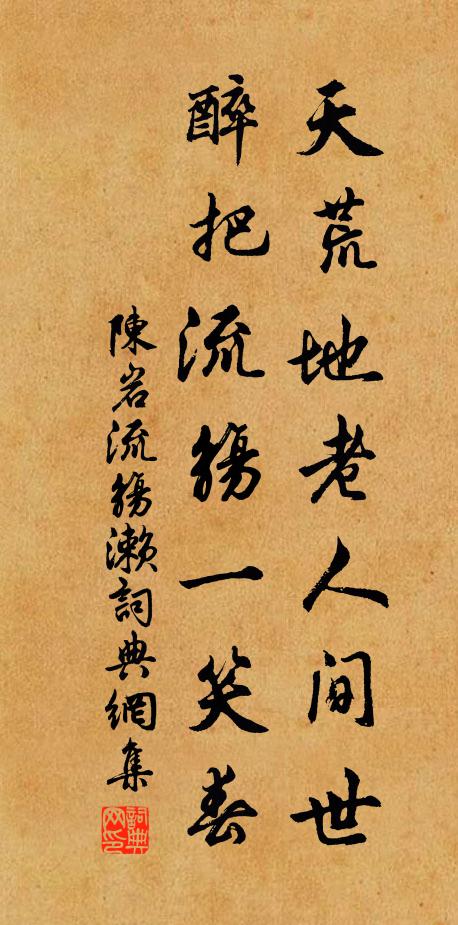 天荒地老人间世
醉把流觴一笑春
陳岩流觴濑詞典網集
詞典网印